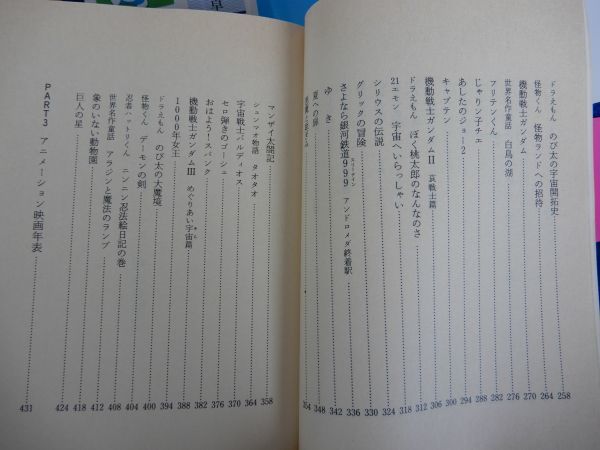 ドラえもん のび太の宇宙開拓史 258
怪物くん 怪物ランドへの招待 264
機動戦士ガンダム 270
世界名作童話 白鳥の湖 276
フリテンくん 282
じゃりン子チエ 288
あしたのジョー2 294
キャプテン 300
機動戦士ガンダムⅡ 哀戦士篇 306
ドラえもん ぼく桃太郎のなんなのさ 312
21エモン 宇宙へいらっしゃい 318
シリウスの伝説 324
グリックの冒険 330
さよなら銀河鉄道999 アンドロメダ終着駅 336
ゆき 342
夏への扉 348
354
マンザイ太閤記 358
シュンマオ物語 タオタオ 364
宇宙戦士バルディオス 370
セロ弾きのゴーシュ 376
おはよう!スパンク 382
機動戦士ガンダムⅢ めぐりあい宇宙篇 388
1000年女王 394
ドラえもん のび太の大魔境 400
怪物くん デーモンの剣 404
忍者ハットリくん ニンニン忍法絵日記の巻 408
世界名作童話 アラジンと魔法のランプ 412
象のいない動物園 418
巨人の星 424
PART3 アニメーション映画年表 431